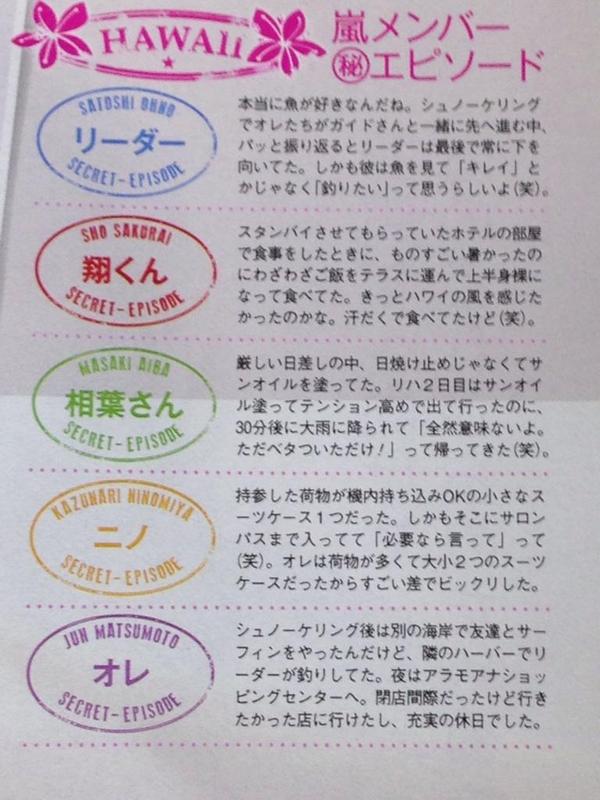 HAWAII
嵐メンバー
㊙エピソード
SATOSHI OHNO
リーダー
SECRET-EPISODE
本当に魚が好きなんだね。シュノーケリング
でオレたちがガイドさんと一緒に先へ進む中、
パッと振り返るとリーダーは最後で常に下を
向いてた。しかも彼は魚を見て「キレイ」と
かじゃなく「釣りたい」って思うらしいよ(笑)。
SHO SAKURAI
翔くん
SECRET-EPISODE
スタンバイさせてもらっていたホテルの部屋
で食事をしたときに、ものすごい暑かったの
にわざわざご飯をテラスに運んで上半身裸に
なって食べてた。きっとハワイの風を感じた
かったのかな。汗だくで食べてたけど(笑)。
MASAKI AIBA
相葉さん
SECRET-EPISODE
厳しい日差しの中、日焼け止めじゃなくてサ
ンオイルを塗ってた。リハ2日目はサンオイ
ル塗ってテンション高めで出て行ったのに、
30分後に大雨に降られて「全然意味ないよ。
ただベタついただけ!」って帰ってきた(笑)。
KAZUNARI NINOMIYA
ニノ
SECRET-EPISODE
持参した荷物が機内持ち込みOKの小さなス
ーツケース1つだった。しかもそこにサロン
パスまで入ってて「必要なら言って」って
(笑)。オレは荷物が多くて大小2つのスーツ
ケースだったからすごい差でビックリした。
JUN MATSUMOTO
オレ
SECRET-EPISODE
シュノーケリング後は別の海岸で友達とサー
フィンをやったんだけど、隣のハーバーでリ
ーダーが釣りしてた。夜はアラモアナショッ
ピングセンターへ。閉店間際だったけど行き
たかった店に行けたし、充実の休日でした。